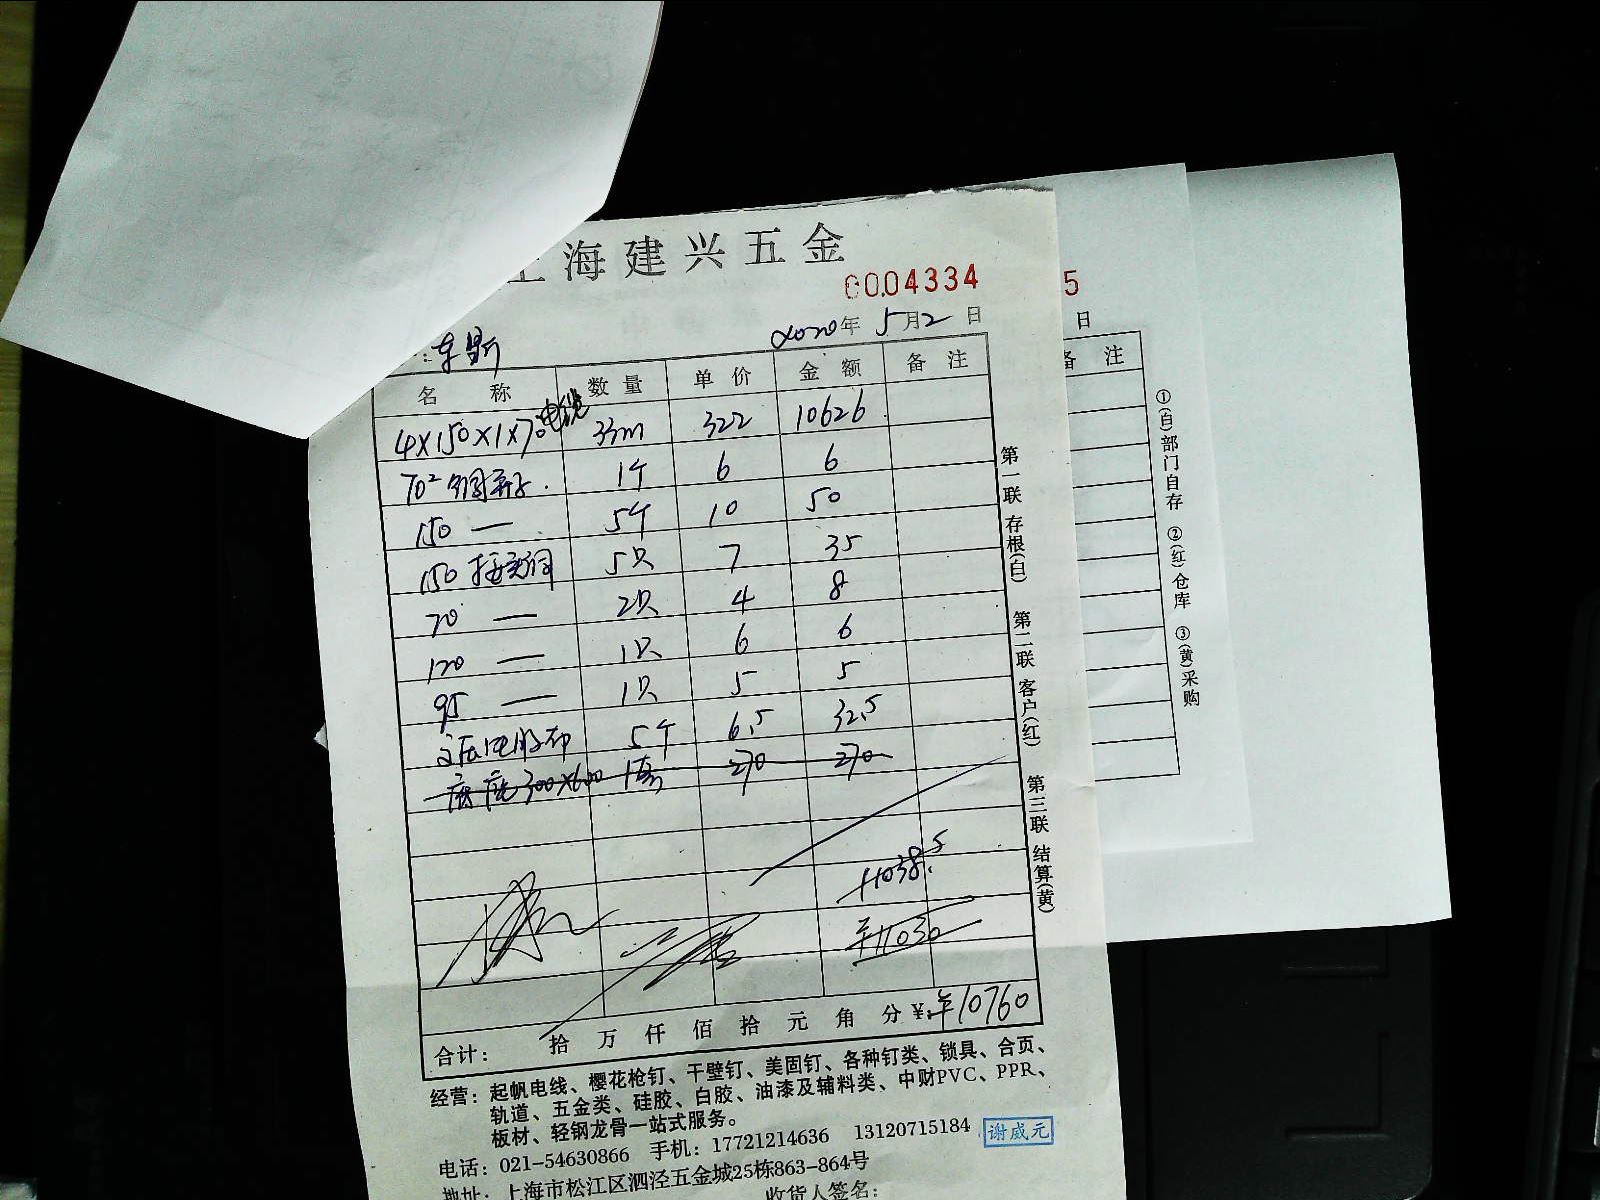 上海建兴五金
0004334
5
2020年 5月2日
日
名称 数量 单价 金额 备注
备注
4×150×1×70电缆 33m 322 10626
70² 铜鼻子. 1个 6 6
150 — 5个 10 50
150 接线铜 5只 7 35
70 — 2只 4 8
120 — 1只 6 6
95 — 1只 5 5
高压电胶布 5个 6.5 32.5
300×600 1套 270 270
11038.5
¥11030
合计： 拾 万 仟 佰 拾 元 角 分 ¥：¥10760
第一联 存根(白) 第二联 客户(红) 第三联 结算(黄)
①(白)部门自存 ②(红)仓库 ③(黄)采购
经营：起帆电线、樱花枪钉、干壁钉、美固钉、各种钉类、锁具、合页、
轨道、五金类、硅胶、白胶、油漆及辅料类、中财PVC、PPR、
板材、轻钢龙骨一站式服务。
电话：021-54630866 手机：17721214636 13120715184 谢威元
地址：上海市松江区泗泾五金城25栋863-864号
收货人签名：